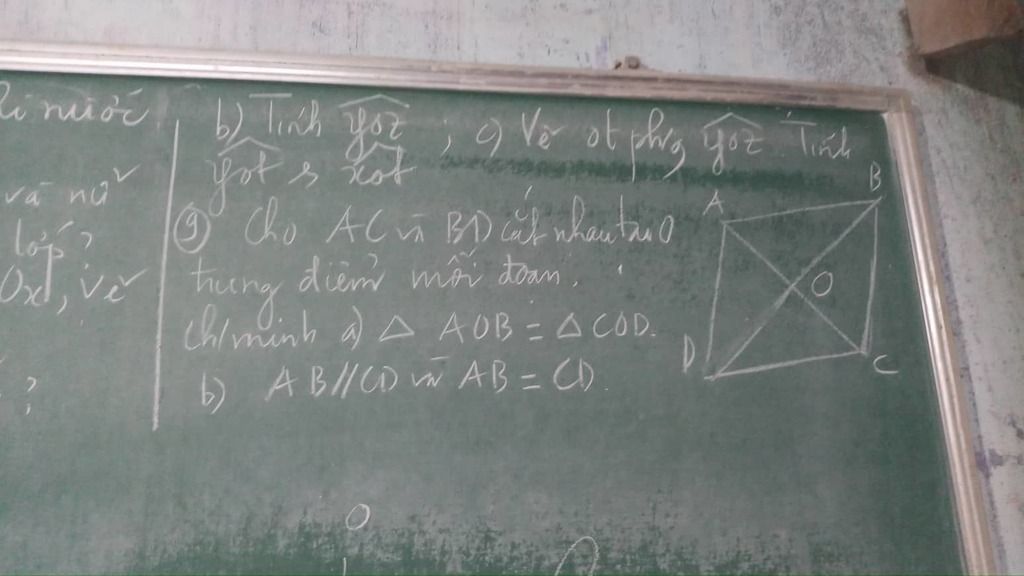 nước
và nữ
lớp?
Ox, vẽ
?
b) Tính yoz ; c) Vẽ ot phg yoz. Tính
yot và xot
9 Cho AC và BD cắt nhau tại O
trung điểm mỗi đoạn.
Ch/minh a) △ AOB = △ COD.
b) AB//CD và AB = CD.
A
B
O
D
C